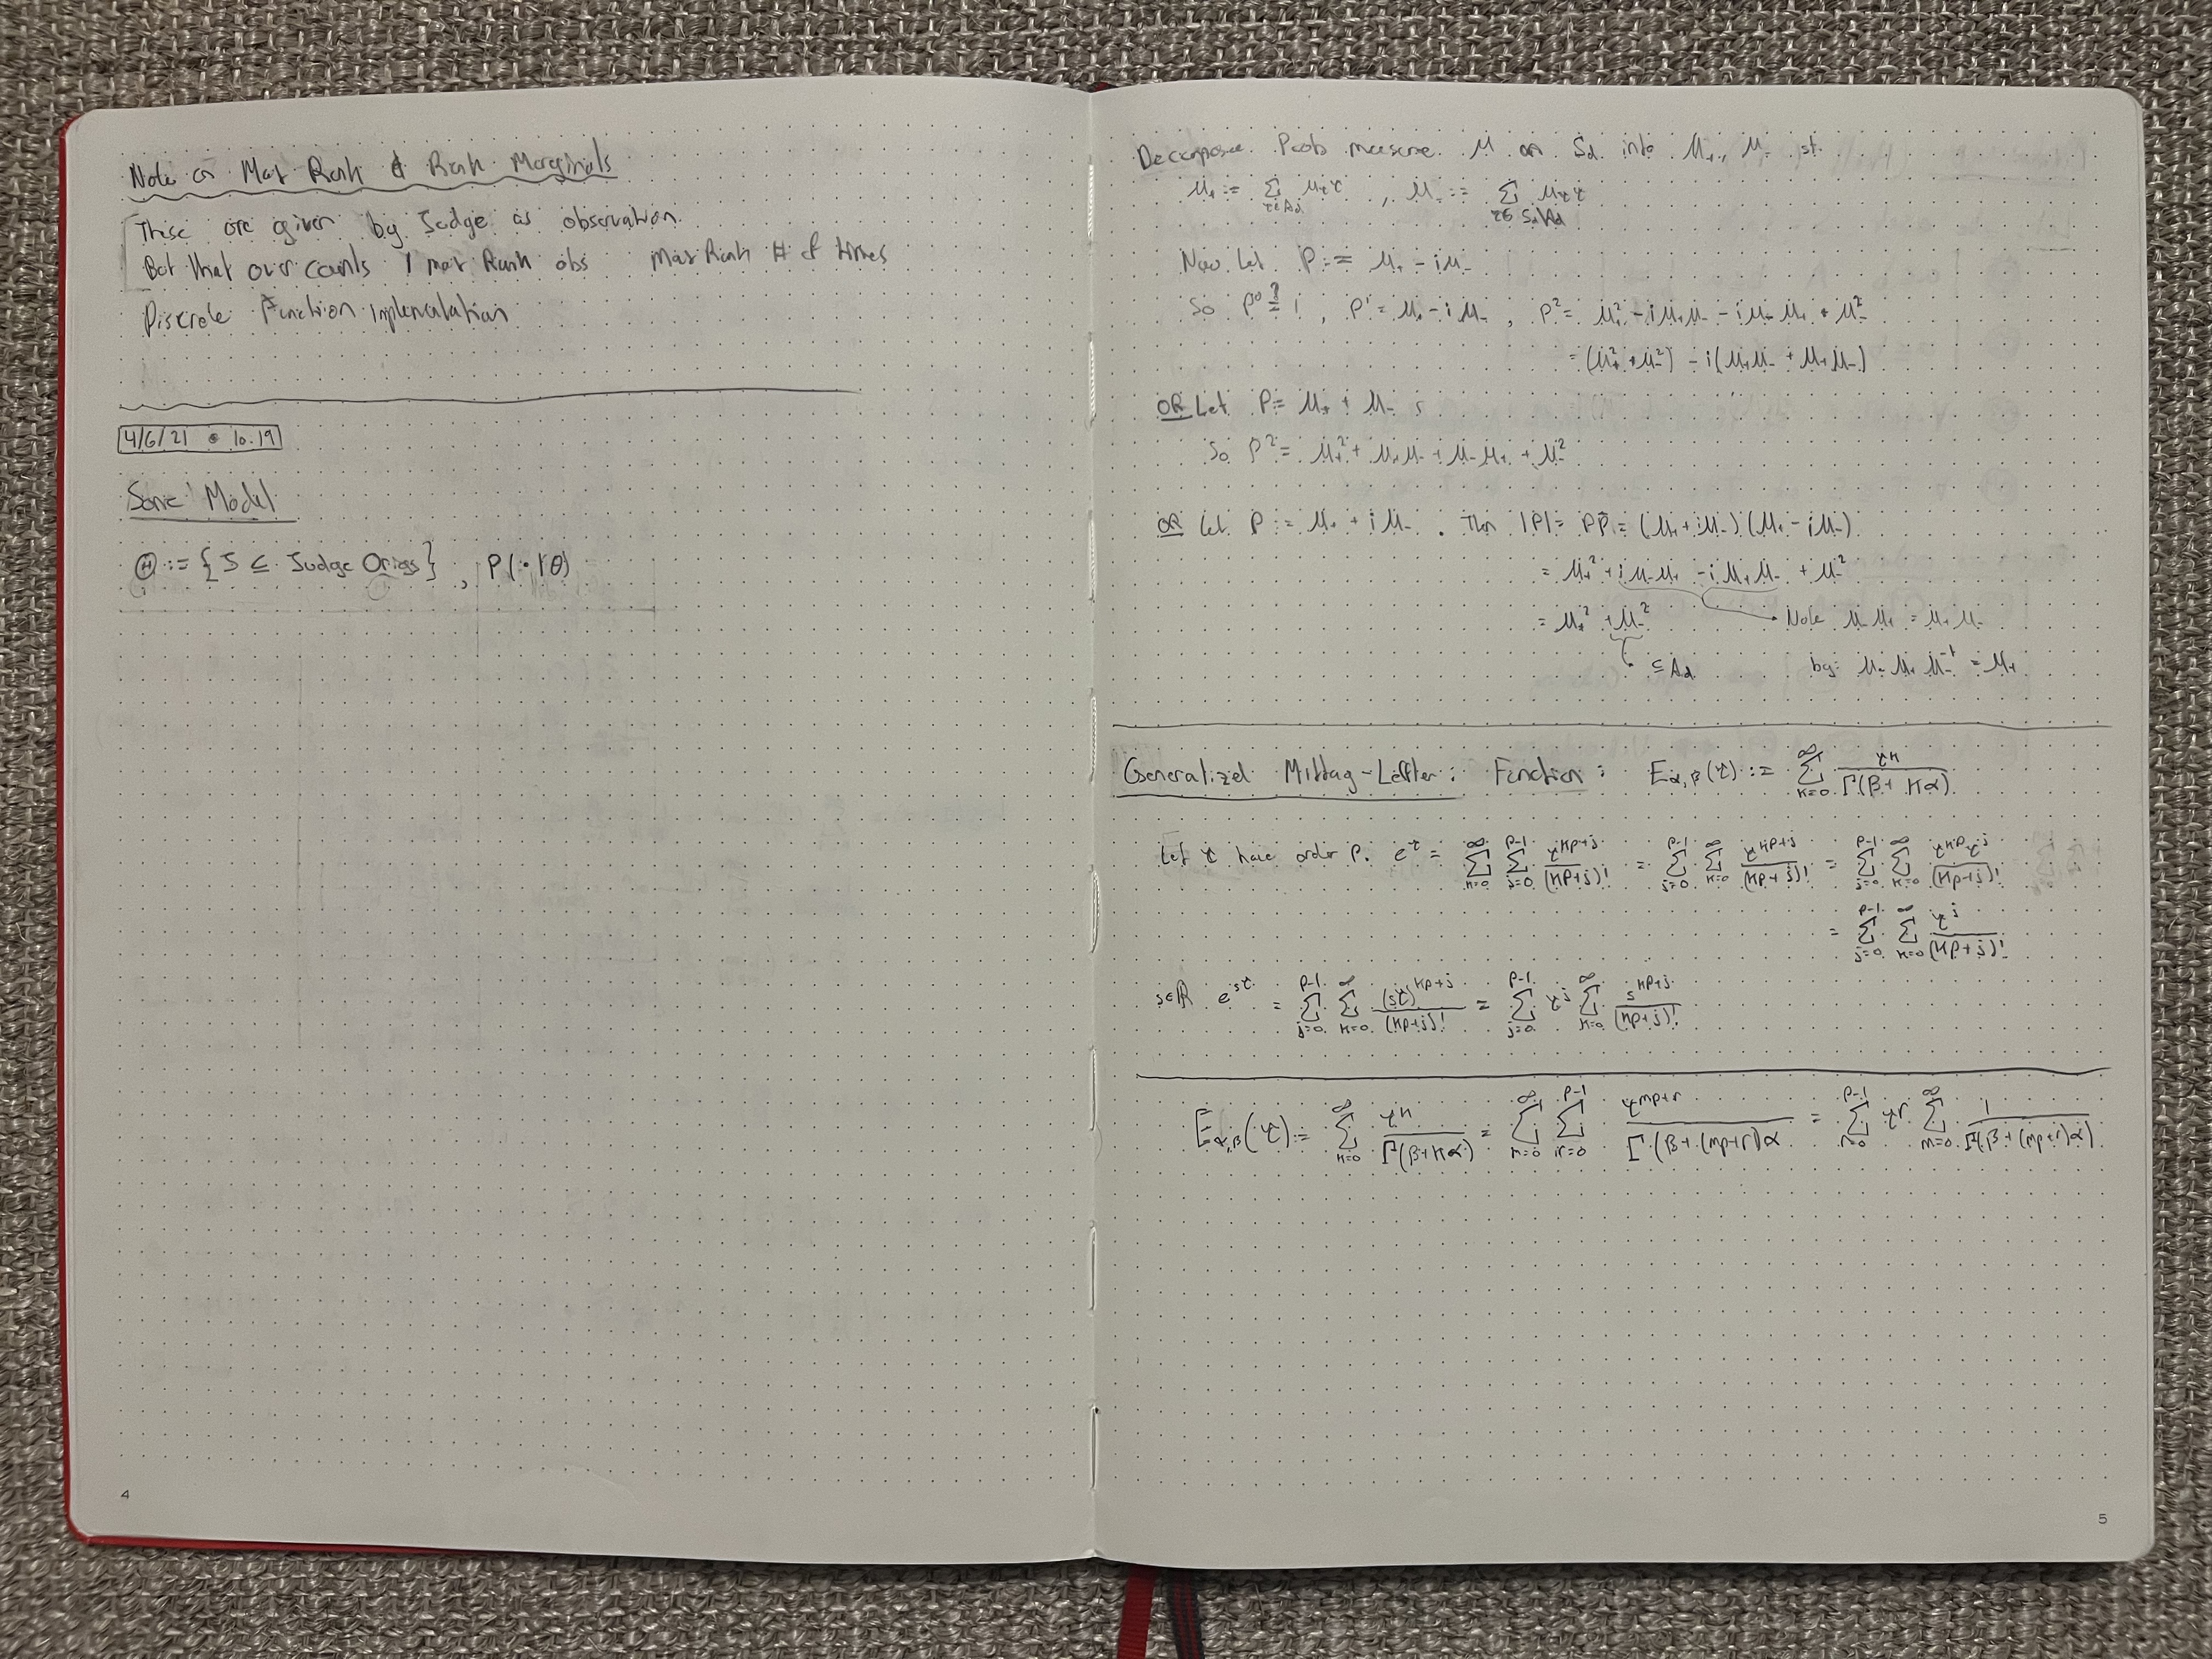 Note on Max Rank & Rank Marginals
These are given by Judge as observation
But that over counts 1 max Rank obs Max Rank # of times
Discrete Function Implementation
4/6/21 • 10.19
Some Model
Ⓗ := { J ⊆ Judge Orings } , P(·|θ)
4
Decompose Prob measure μ on S_d into μ₊, μ₋ st.
μ₊ := Σ_{τ∈A_d} μ_τ τ , μ₋ := Σ_{τ∈S_d\A_d} μ_τ τ
Now let P := μ₊ - iμ₋
So P⁰ ≟ 1 , P¹ = μ₊ - iμ₋ , P² = μ₊² - iμ₊μ₋ - iμ₋μ₊ + μ₋²
= (μ₊² + μ₋²) - i(μ₋μ₊ + μ₊μ₋)
OR Let P = μ₊ + μ₋
So P² = μ₊² + μ₊μ₋ + μ₋μ₊ + μ₋²
OR Let P := μ₊ + iμ₋ . Then |P| = PP̄ = (μ₊ + iμ₋)(μ₊ - iμ₋)
= μ₊² + iμ₋μ₊ - iμ₊μ₋ + μ₋²
= μ₊² + μ₋² Note μ₋μ₊ = μ₊μ₋
⊆ A_d bc μ₋μ₊μ₋⁻¹ = μ₊
Generalized Mittag-Leffler: Function: E_{α,β}(τ) := Σ_{k=0}^∞ τ^k / Γ(β + kα)
Let τ have order p. e^τ = Σ_{k=0}^∞ Σ_{j=0}^{p-1} τ^{kp+j} / (kp+j)! = Σ_{j=0}^{p-1} Σ_{k=0}^∞ τ^{kp+j} / (kp+j)! = Σ_{j=0}^{p-1} Σ_{k=0}^∞ τ^{kp} τ^j / (kp+j)!
= Σ_{j=0}^{p-1} Σ_{k=0}^∞ τ^j / (kp+j)!
s∈ℝ e^{sτ} = Σ_{j=0}^{p-1} Σ_{k=0}^∞ (sτ)^{kp+j} / (kp+j)! = Σ_{j=0}^{p-1} τ^j Σ_{k=0}^∞ s^{kp+j} / (kp+j)!
E_{α,β}(τ) := Σ_{k=0}^∞ τ^k / Γ(β+kα) = Σ_{m=0}^∞ Σ_{r=0}^{p-1} τ^{mp+r} / Γ(β + (mp+r)α = Σ_{r=0}^{p-1} τ^r Σ_{m=0}^∞ 1 / Γ(β + (mp+r)α)
5